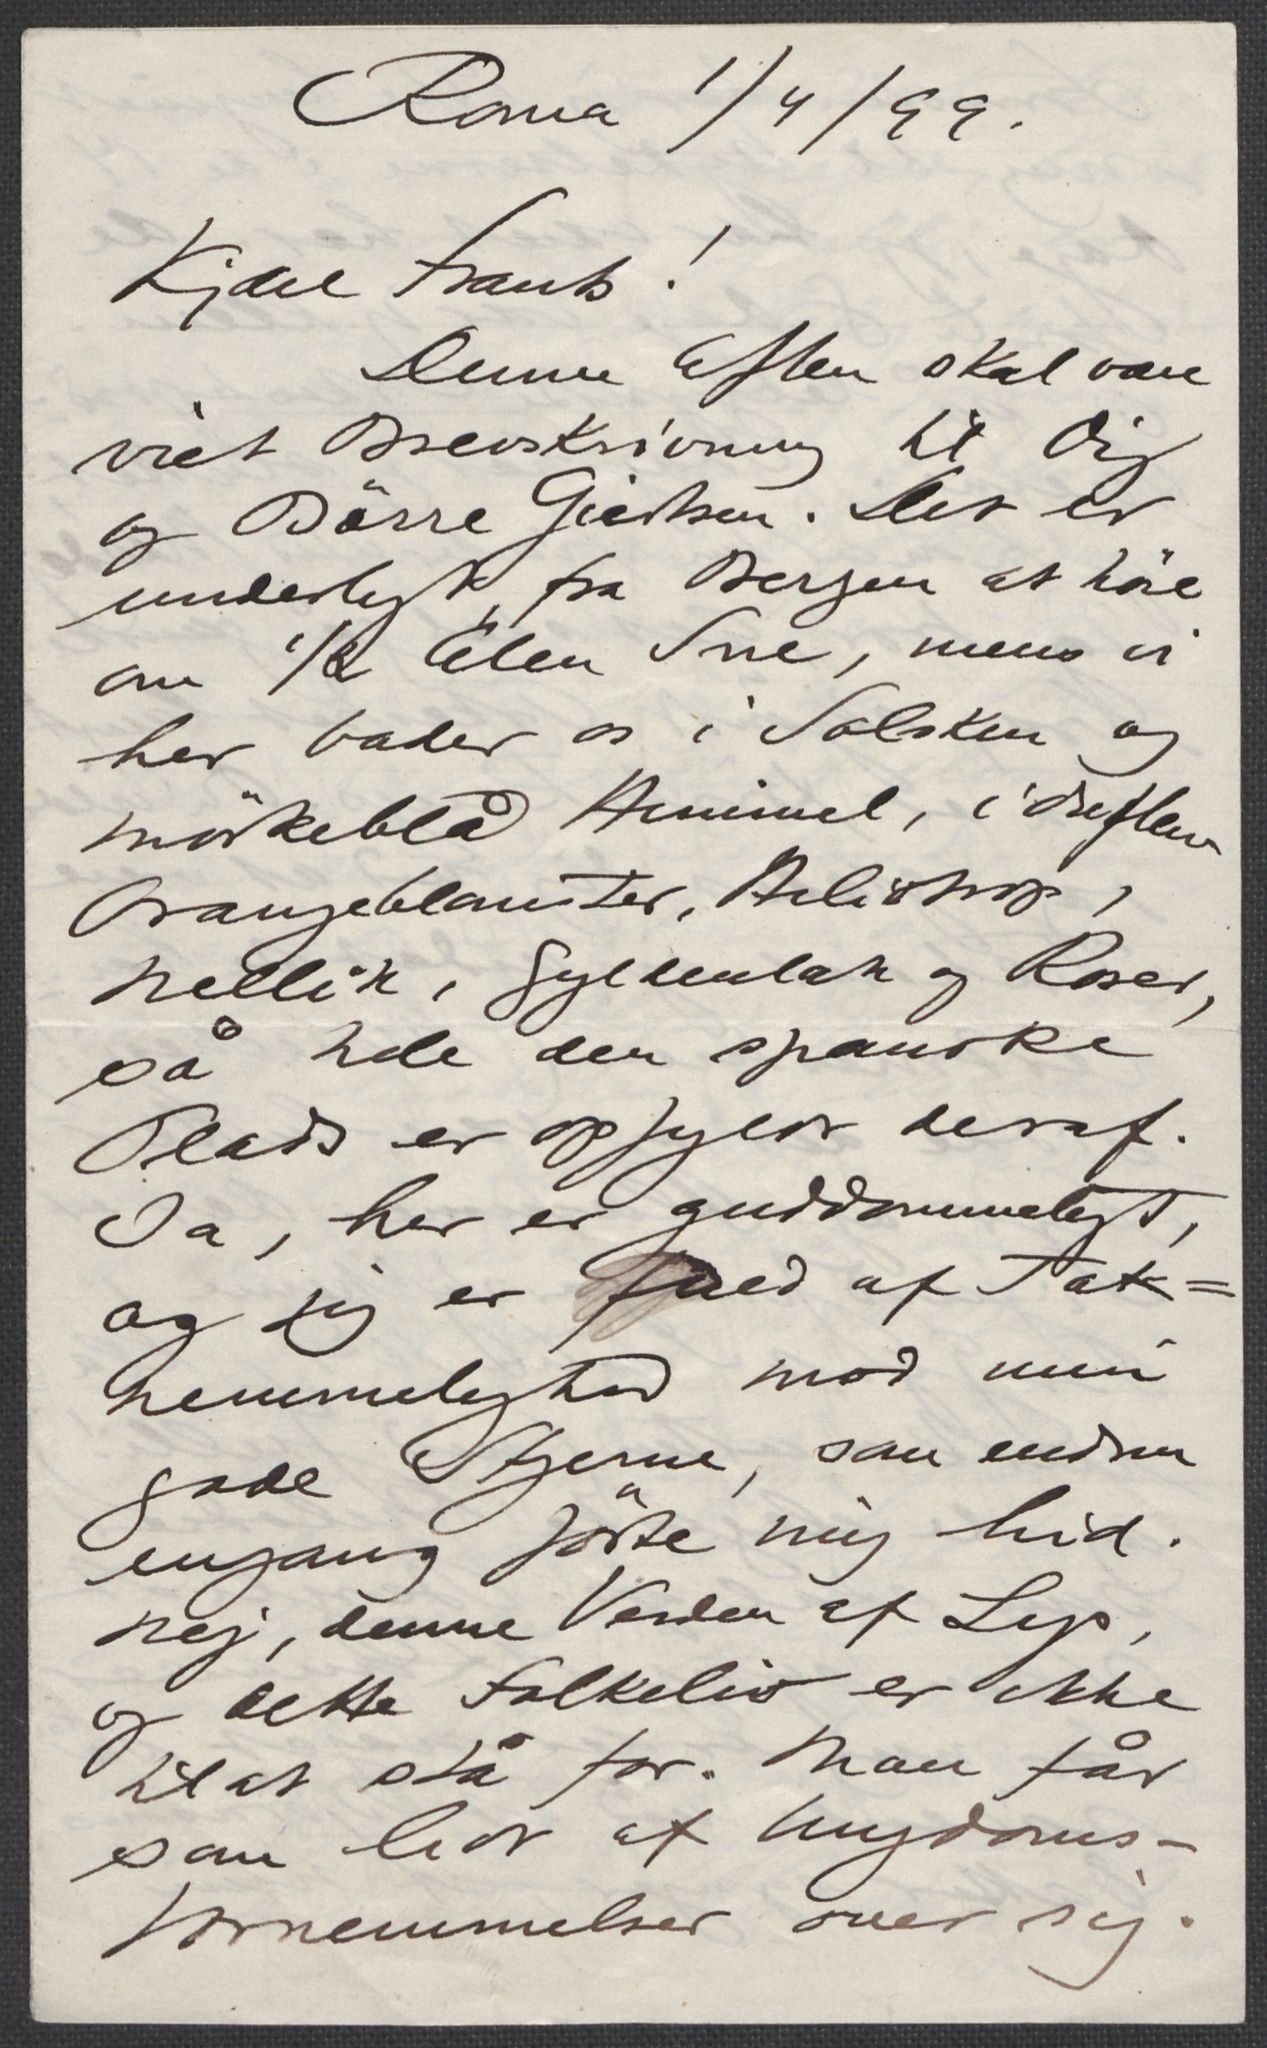 Roma 1/4/99.
Kjære Frants!
Denne Aften skal være
viet Brevskrivning til Dig
og Börre Giertsen. Det er
underligt, fra Bergen at høre
om 1/2 Alen Sne, mens vi
her bader os i Solsken og
mörkeblå Himmel, i
Orangeblomster, Heliotrop,
Nellik, Gyldenlak og Roser,
så hele den spanske
Plads er opfyldt deraf.
Ja, her er guddommeligt,
og jeg er fuld af Tak=
nemmelighed mod min
gode Stjerne, som endnu
engang förte mig hid.
Nej, denne Verden af Lys,
og dette Folkeliv er ikke
til at stå for. Man får
som lidt af Ungdoms-
fornemmelser over sig.